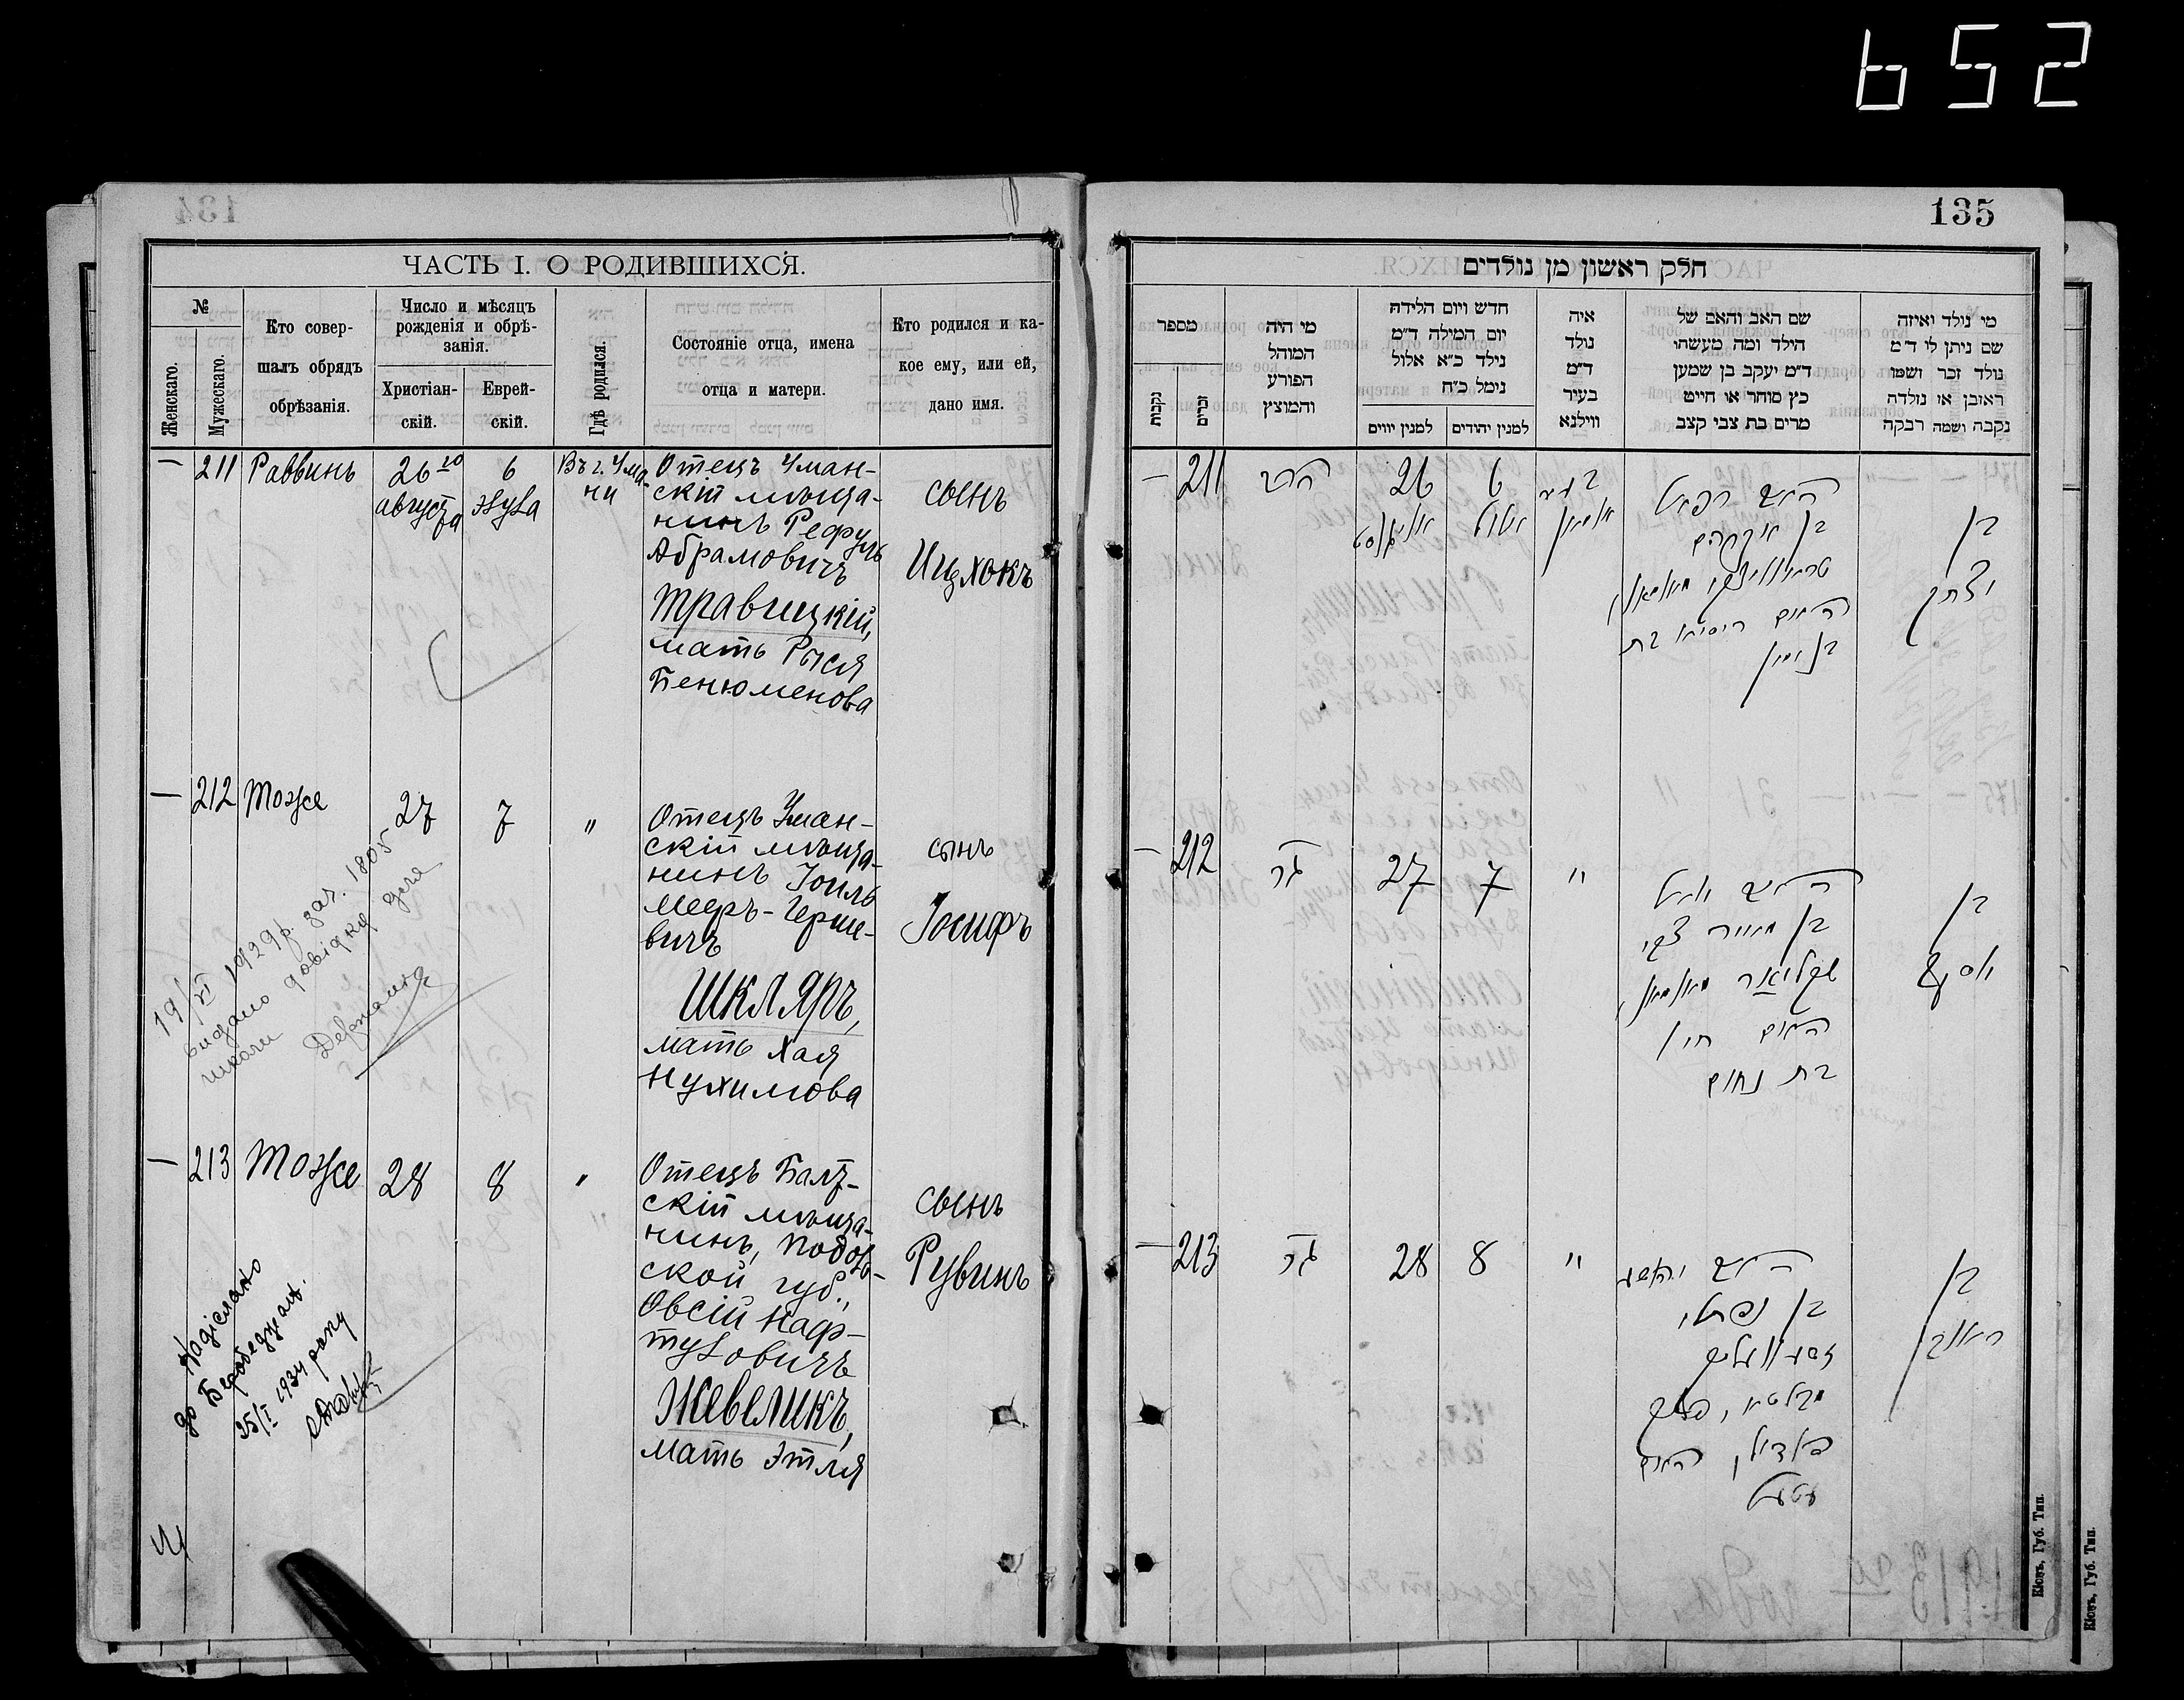 652
134
ЧАСТЬ I. О РОДИВШИХСЯ.
№
Женскаго.
Мужескаго.
Кто совер-
шалъ обрядъ
обрѣзанія.
Число и мѣсяцъ
рожденія и обрѣ-
занія.
Христіан-
скій.
Еврей-
скій.
Гдѣ родился.
Состояніе отца, имена
отца и матери.
Кто родился и ка-
кое ему, или ей,
дано имя.
— 211 Раввинъ
26го
августа
6
Элула
Въ г. Ума-
ни
Отецъ Уман-
скій мѣща-
нинъ Рефуль
Абрамовичъ
Травицкій,
мать Рыся
Бенюменова
сынъ
Ицхокъ
— 212 Тоже
27
7
"
Отецъ Уман-
скій мѣща-
нинъ Іоиль
Мееръ-Герше-
вичъ
Шкляръ,
мать Хая
Нухимова
сынъ
Іосифъ
19/VI 1929р. заг. 1805
видано довідка для
школи
— 213 Тоже
28
8
"
Отецъ Балт-
скій мѣща-
нинъ, Подоль-
ской губ.,
Овсій Наф-
туловичъ
Жевеликъ,
мать Этля
сынъ
Рувинъ
Надіслано
до
25/I 1934 року
135
חלק ראשון מן נולדים
מספר
נקבות
זכרים
מי היה
המוהל
הפורע
והמוצץ
חדש ויום הלידה
יום המילה ד״מ
נילד כ״א אלול
נימל כ״ח
למנין יווים
למנין יהודים
איה
נולד
ד״מ
בעיר
ווילנא
שם האב והאם של
הילד ומה מעשהו
ד״מ יעקב בן שמען
כץ סוחר או חייט
מרים בת צבי קצב
מי נולד ואיזה
שם ניתן לו ד״מ
נולד זכר ושמו
ראובן או נולדה
נקבה ושמה רבקה
— 211
הרב
26
אויגוסט
6
אלול
בעיר
אומאן
האב רפאל
בן אברהם
טראוויצקי מאומאן,
האם ריסיא בת
בנימין
בן
יצחק
— 212
גר
27
7
"
האב יואל
בן מאיר צבי
שקליאר מאומאן,
האם חי׳
בת נחום
בן
יוסף
— 213
גר
28
8
"
האב יהושע
בן נפתלי
זשעוועליק
מבאלטא, פלך
פאדאל, האם
עטעל
בן
ראובן
Кіевъ, Губ. Тип.
Кіевъ, Губ. Тип.